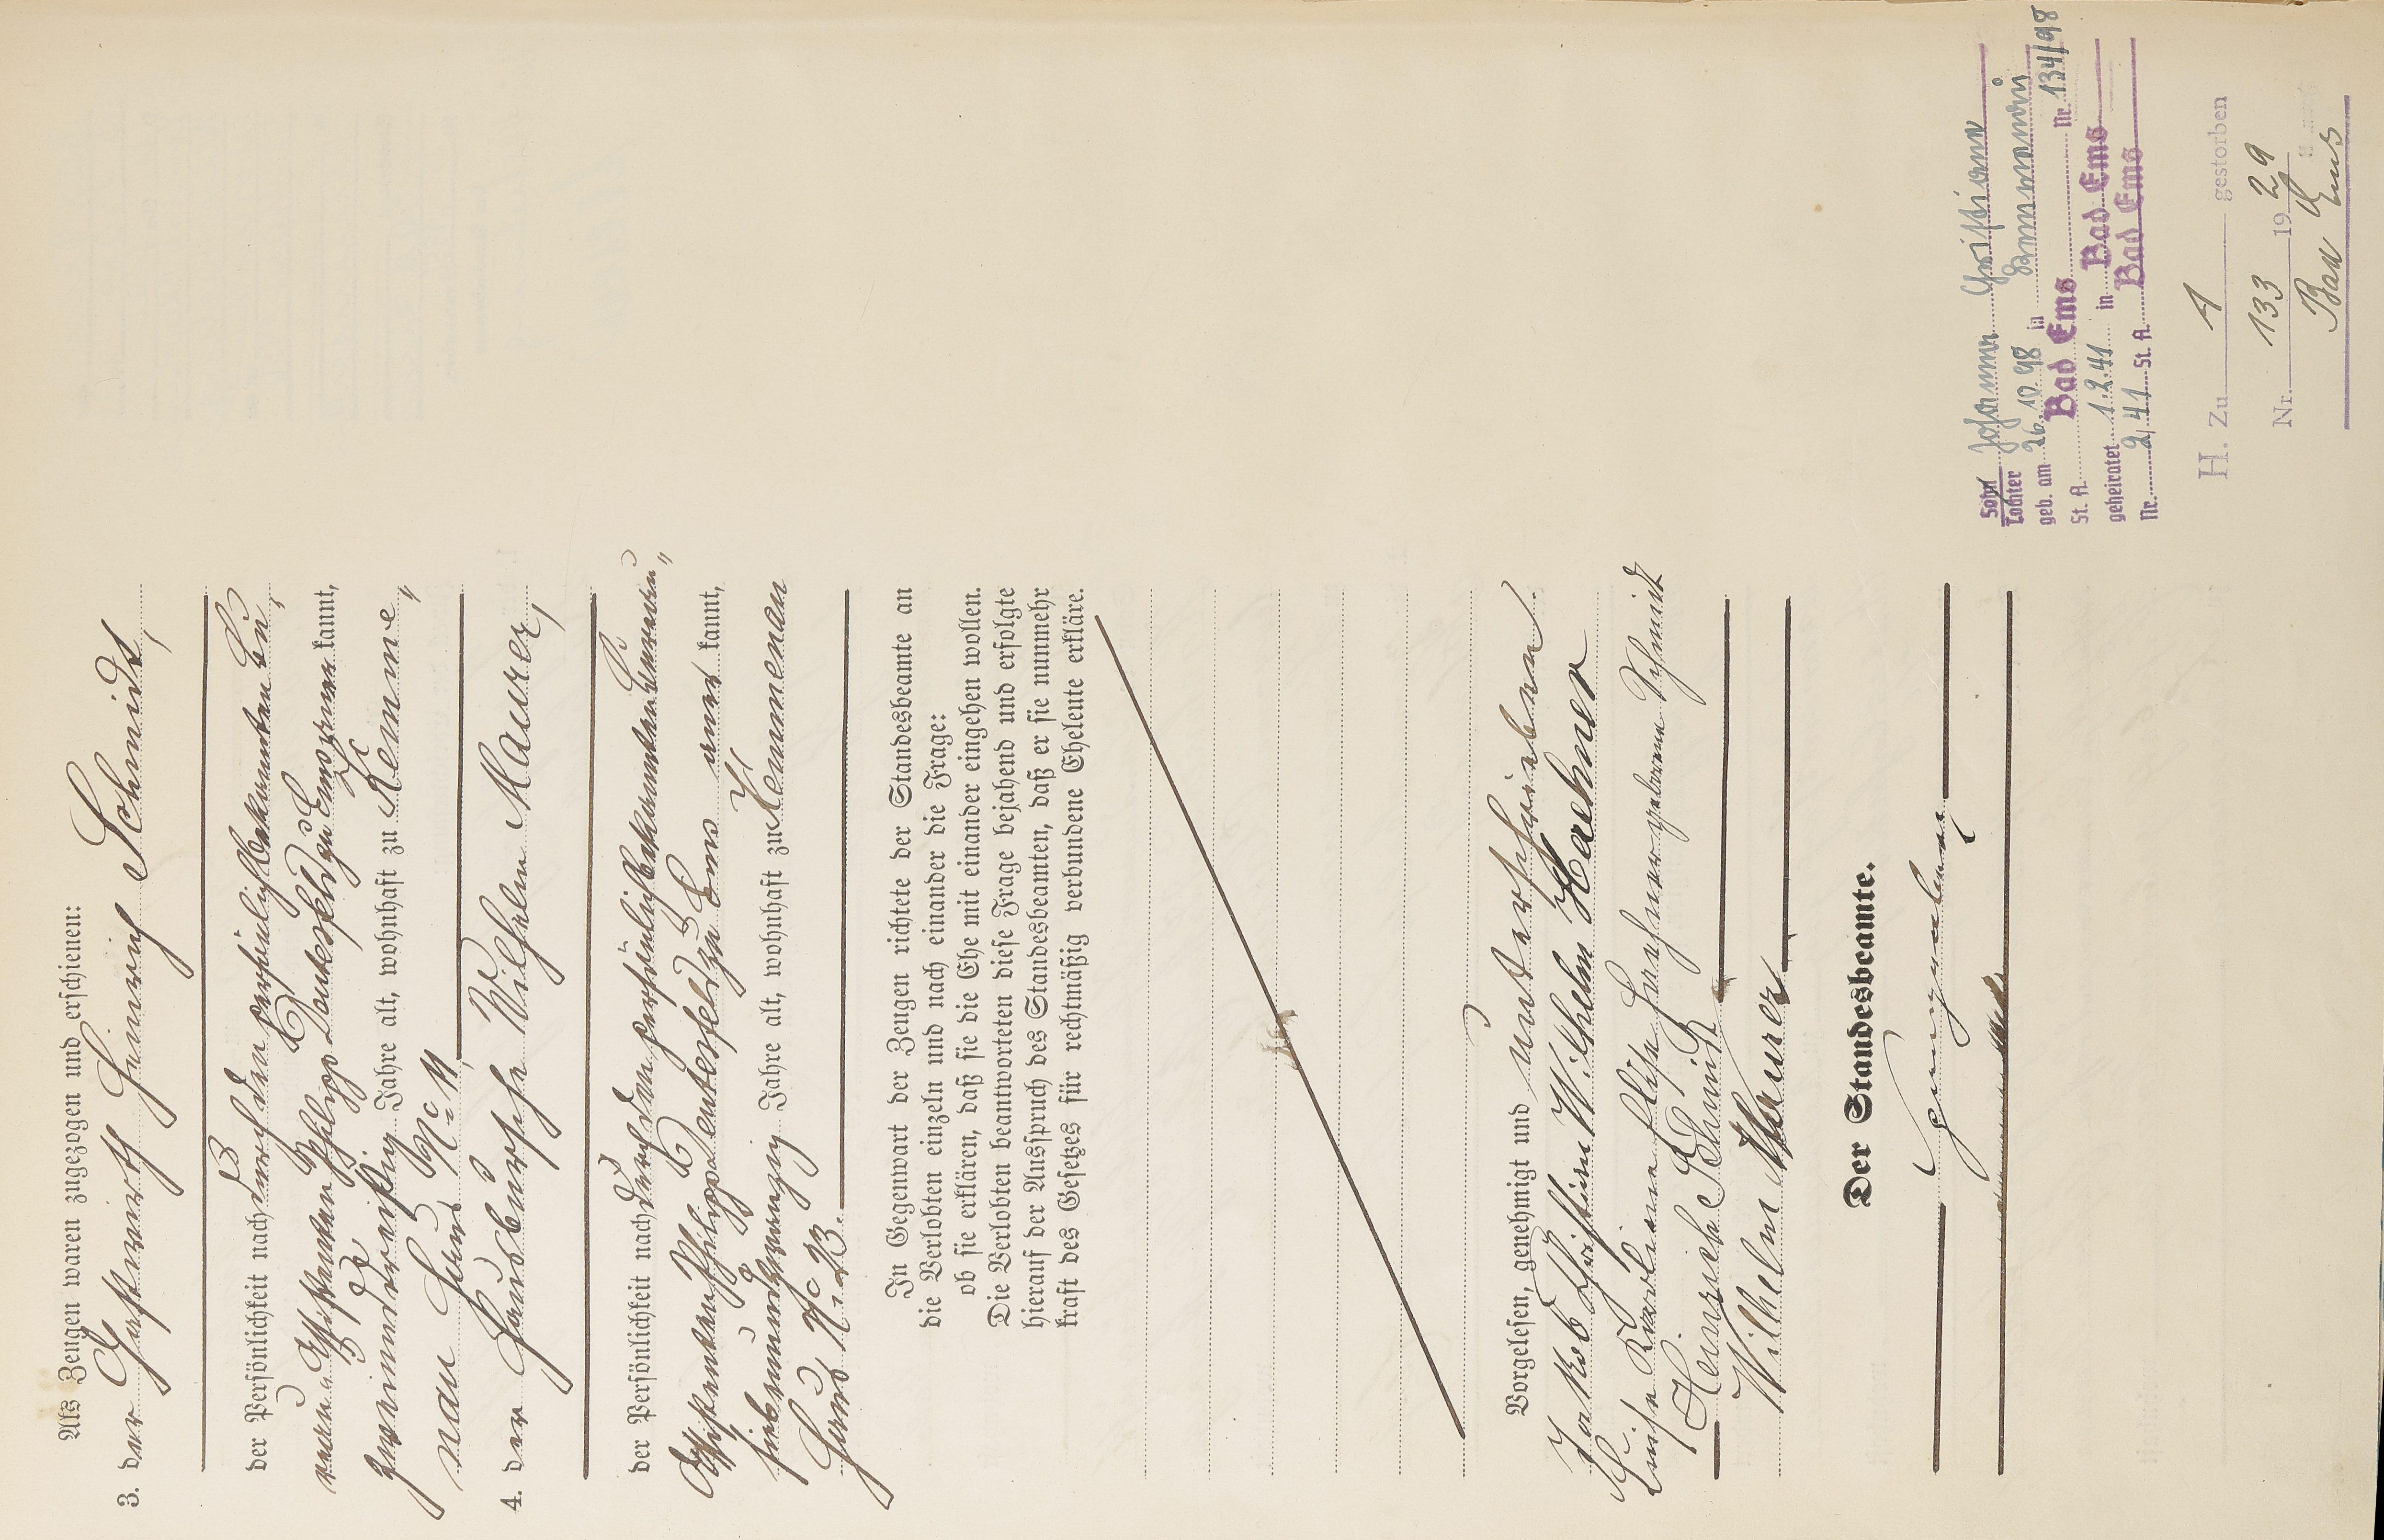 Als Zeugen waren zugezogen und erschienen:
3. der Gastwirth Heinrich Schmidt,
der Persönlichkeit nach durch den persönlich bekannten Bu-
reau-Assistenten Philipp Dautesfeld zu Ems aner kannt,
zweiunddreißig Jahre alt, wohnhaft zu Kemme-
nau Haus No. 11.
4. der Hausbursche Wilhelm Maurer,
der Persönlichkeit nach durch den persönlich bekannten Bureau-
Assistenten Philipp Dautesfeld zu Ems aner kannt,
siebenundzwanzig Jahre alt, wohnhaft zu Kemmenau
Haus No. 13.
In Gegenwart der Zeugen richtete der Standesbeamte an
die Verlobten einzeln und nach einander die Frage:
ob sie erklären, daß sie die Ehe mit einander eingehen wollen.
Die Verlobten beantworteten diese Frage bejahend und erfolgte
hierauf der Ausspruch des Standesbeamten, daß er sie nunmehr
kraft des Gesetzes für rechtmäßig verbundene Eheleute erkläre.
Vorgelesen, genehmigt und unterschrieben.
Jakob Christian Wilhelm Hachner
Luise Karoline Elise Hachner geborene Schmidt
Heinrich Schmidt
Wilhelm Maurer
Der Standesbeamte.
Sohn Johann Christian
Tochter
geb. am 26.10.98 in
St. A. Bad Ems Nr. 134/98
geheiratet 1.2.41 in Bad Ems
Nr. 2/41 St. A. Bad Ems
H. Zu 1 gestorben
Nr. 133 1929
Bad Ems